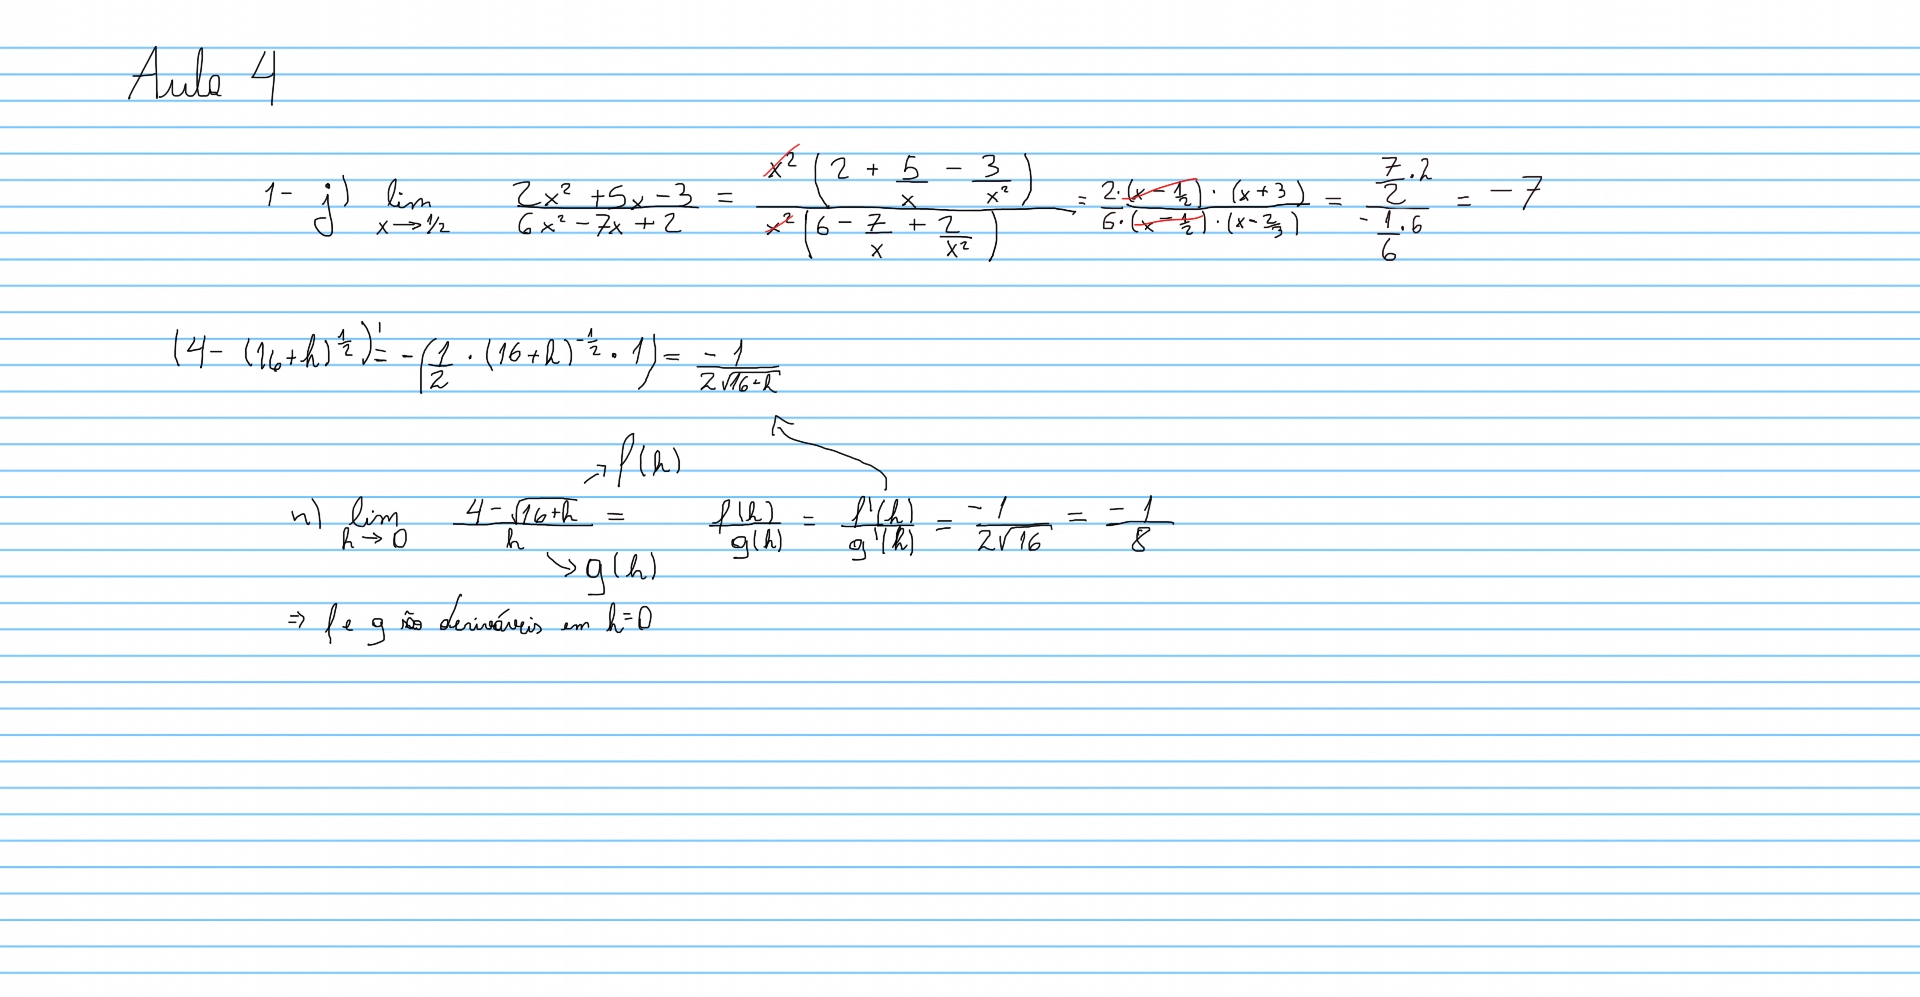 Aula 4
1- j) lim x→1/2 (2x² + 5x - 3)/(6x² - 7x + 2) = (x² (2 + 5/x - 3/x²))/(x² (6 - 7/x + 2/x²)) = (2·(x - 1/2)·(x + 3))/(6·(x - 1/2)·(x - 2/3)) = (7/2 · 2)/(-1/6 · 6) = -7
(4 - (16+h)^(1/2))' = -(1/2 · (16+h)^(-1/2) · 1) = -1/(2√(16+h))
→ f(h)
n) lim h→0 (4 - √(16+h))/h = f(h)/g(h) = f'(h)/g'(h) = -1/(2√16) = -1/8
↘ g(h)
⇒ f e g são deriváveis em h=0